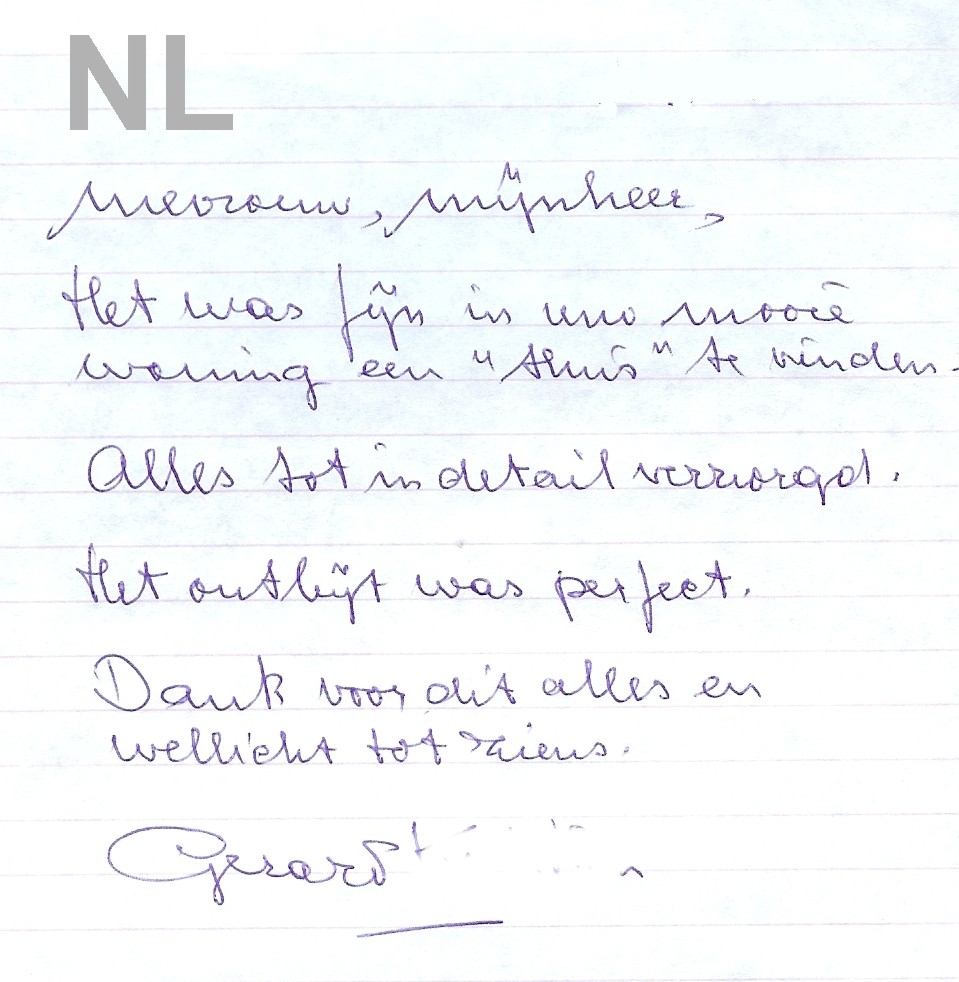 NL
Mevrouw, Mijnheer,
Het was fijn in uw mooie
woning een "thuis" te vinden.
Alles tot in detail verzorgd.
Het ontbijt was perfect.
Dank voor dit alles en
wellicht tot ziens.
Gerard